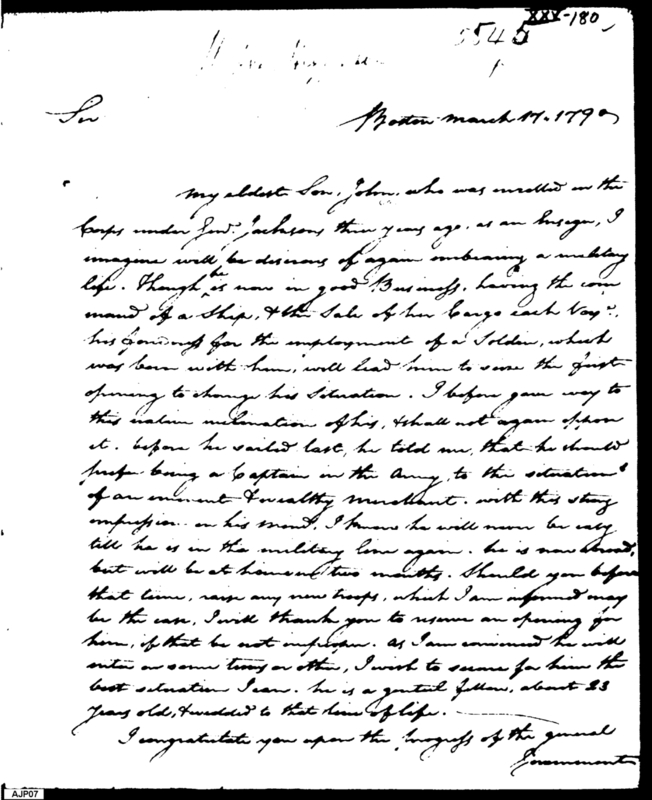 XXX-180
5545
Sir
Boston March 17. 1790
My eldest Son, John, who was enrolled in the
Corps under Genl. Jacksons three years ago, as an Ensign, I
imagine will be desirous of again embracing a military
life. Though he is now in good Business, having the com
mand of a Ship, & the Sale of her Cargo each Voyr.,
his fondness for the employment of a Soldier, which
was born with him, will lead him to seize the first
opening to change his Situation. I before gave way to
this native inclination of his, & shall not again oppose
it. before he sailed last, he told me, that he should
prefer being a Captain in the Army, to the situation
of an eminent & wealthy Merchant. with this strong
impression on his mind, I know he will never be easy
till he is in the military line again. he is now abroad,
but will be at home in two months. Should you before
that time, raise any new troops, which I am informed may
be the case, I will thank you to reserve an opening for
him, if that be not improper. as I am convinced he will
enter on some time or other, I wish to secure for him the
best situation I can. he is a genteel fellow, about 23
Years old, & wedded to that line of life.
I congratulate you upon the Progress of the general
Government
AJP07